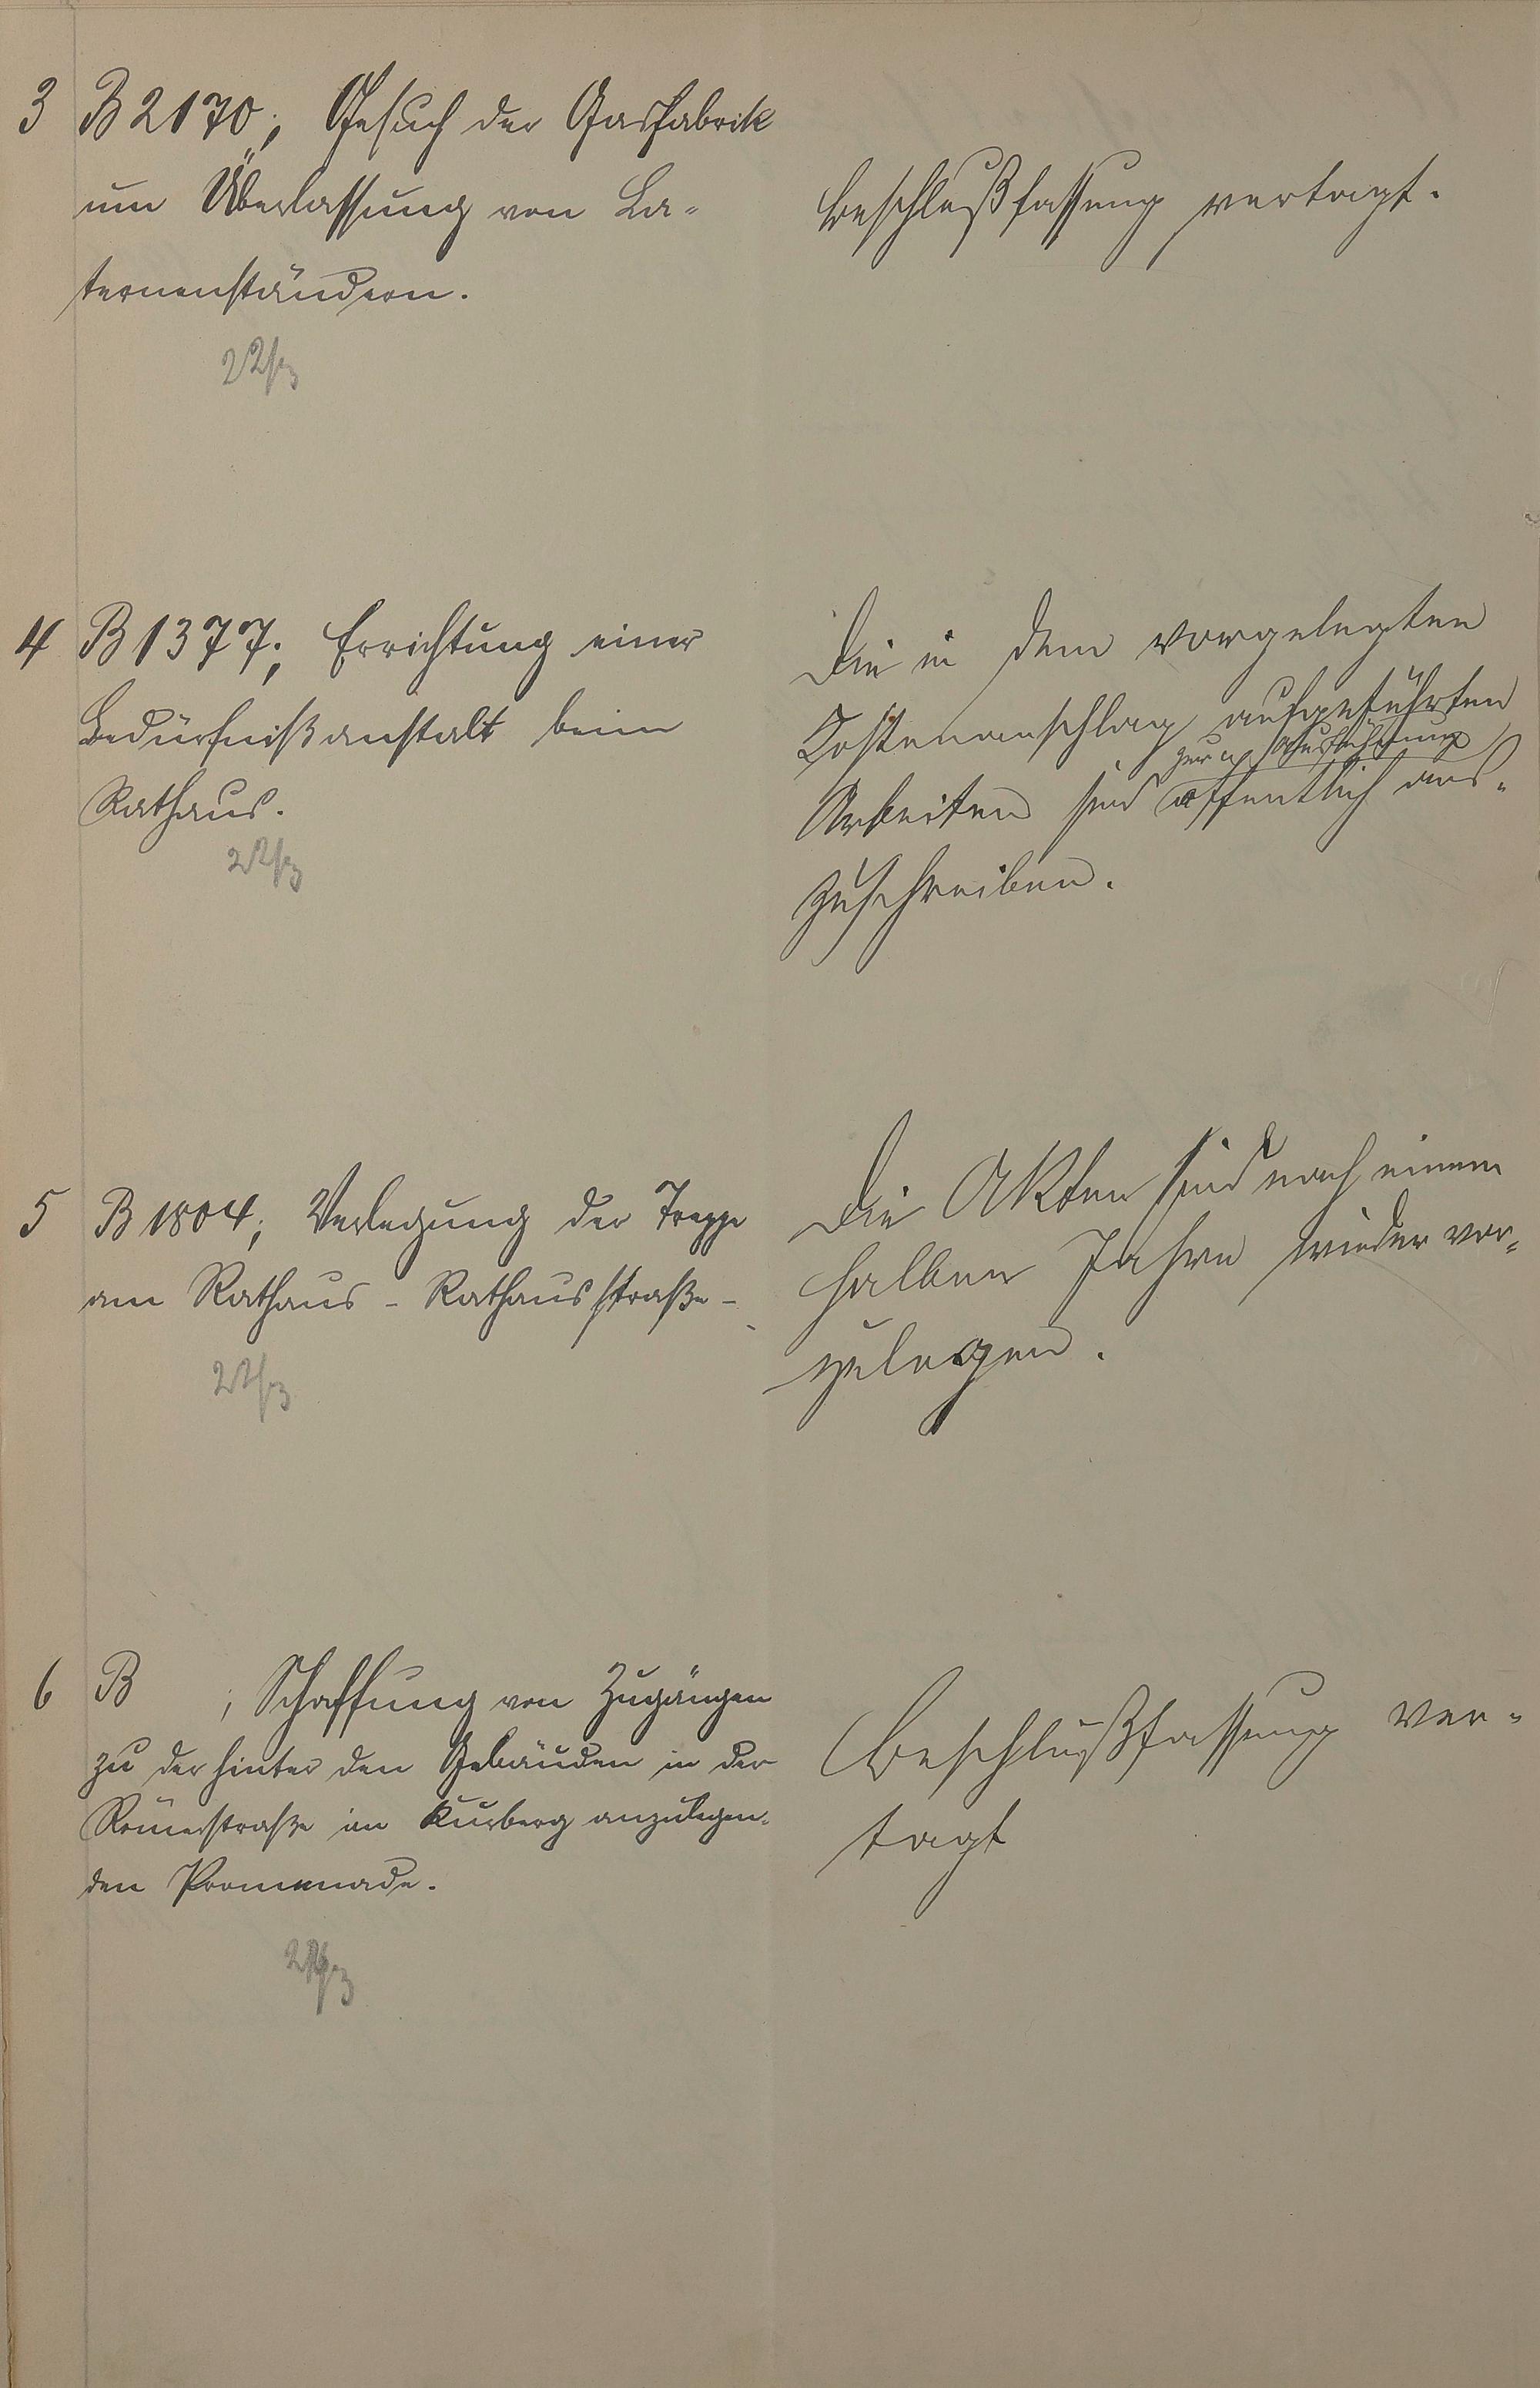 3 B 2170; Gesuch der Gasfabrik
um Überlassung von La-
ternenständern.
Beschlußfassung vertagt.
4 B 1377; Errichtung einer
Bedürfnißanstalt beim
Rathaus.
Die in dem vorgelegten
Kostenanschlag aufgeführten
zur Ausführung
Arbeiten sind öffentlich aus-
zuschreiben.
5 B 1804; Verlegung der Treppe
am Rathaus - Rathausstraße -
Die Akten sind nach einem
halben Jahre wieder vor-
zulegen.
6 B ; Schaffung von Zugängen
zu der hinter den Gebäuden in der
Römerstraße im Kurberg anzulegen-
den Promenade.
Beschlußfassung ver-
tagt